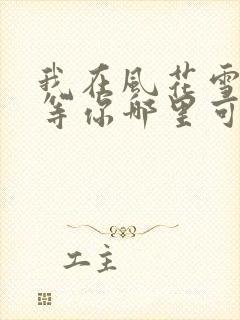 我在風花雪
等你哪里可
工主